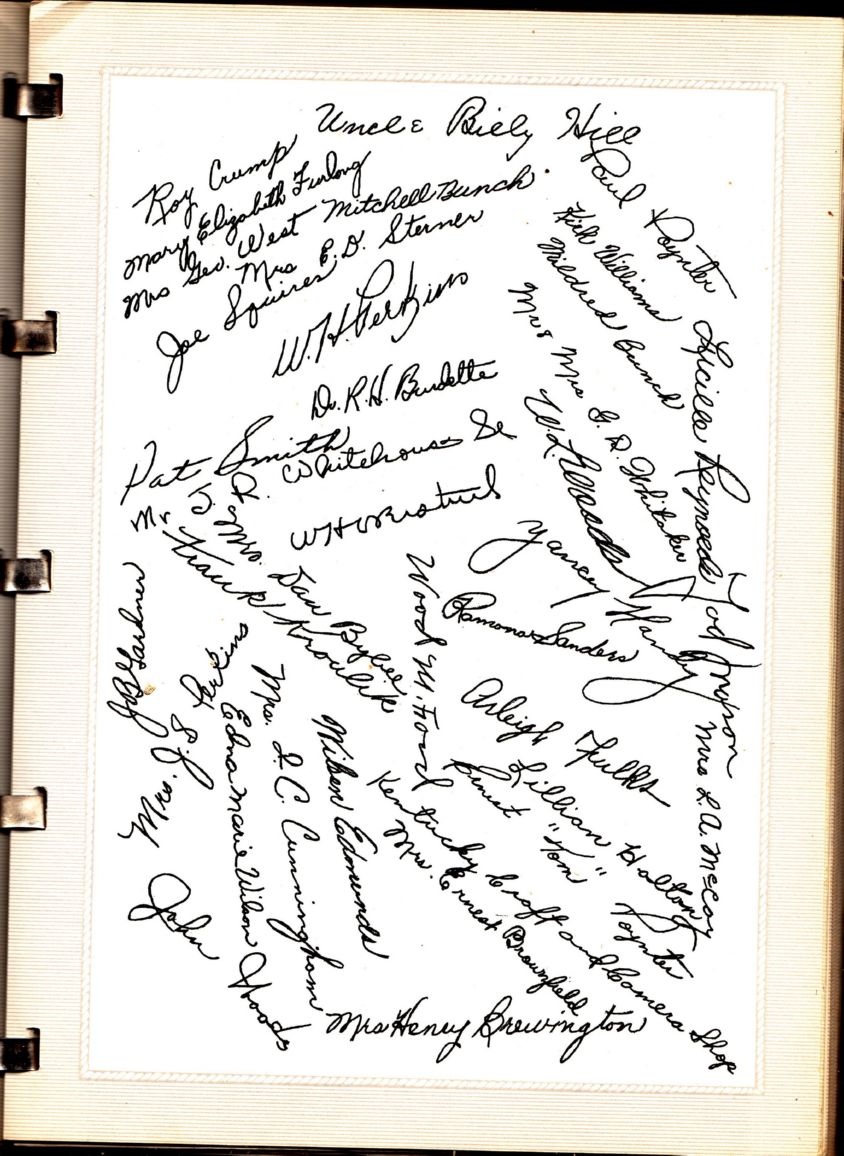 Uncle Billy Hill
Roy Crump
Mary Elizabeth Furlong
Mrs Geo. West Mitchell Bunch
Mrs E. D. Sterner
Joe Squires
W. H. Perkins
Dr. R. H. Burdette
Pat Smith
Whitehouse
Mr & Mrs. Dan Bybee
Frank Kroulik
Paul Poynter
Williams
Mildred Bunch
Mr & Mrs G. D. Whitaker
W. L. Woods
Lucille Reynolds
Tod Bryson
Yancey Haney
Ramona Sanders
Wood M. Ford
Gardner
Mrs. S. J. Perkins
John
Edna Marie Wilson Woods
Mrs. I. C. Cunningham
Edmunds
Arleigh Fulks
Lillian Halton
"Tom" Poynter
Kentucky Craft and Camera Shop
Mrs. Ernest Brownfield
Mrs L. A. McCoy
Mrs Henry Brewington